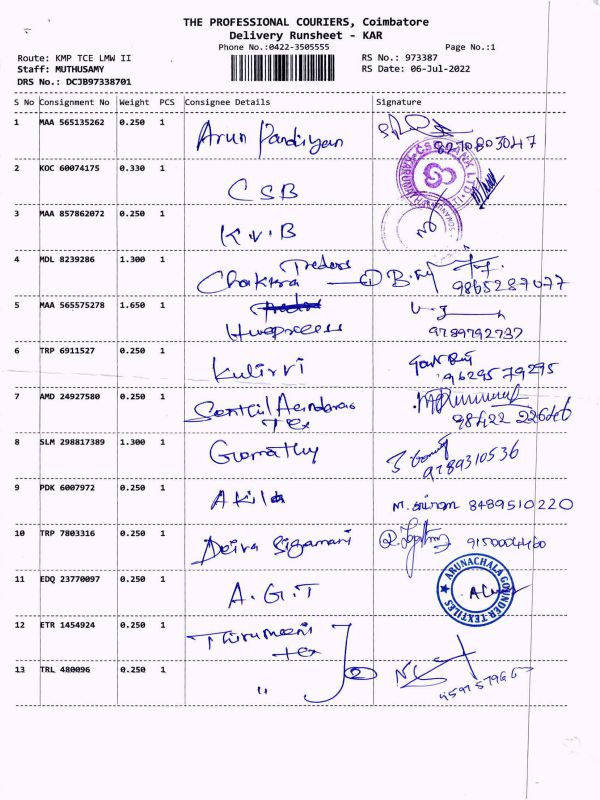 THE PROFESSIONAL COURIERS, Coimbatore
Delivery Runsheet - KAR
Phone No.:0422-3505555
Page No.:1
Route: KMP TCE LMW II
RS No.: 973387
Staff: MUTHUSAMY
RS Date: 06-Jul-2022
DRS No.: DCJB97338701
S No Consignment No Weight PCS Consignee Details Signature
1 MAA 565135262 0.250 1 Arun Pandiyan 8270803047
2 KOC 60074175 0.330 1 CSB
3 MAA 857862072 0.250 1 K.V.B
4 MDL 8239286 1.300 1 Chakra Treders 1 9865287077
5 MAA 565575278 1.650 1 9789792737
6 TRP 6911527 0.250 1 Kulirvi 9629579295
7 AMD 24927580 0.250 1 Senthil Tex 98422 22646
8 SLM 298817389 1.300 1 Gomathy 9789310536
9 PDK 6007972 0.250 1 Akila 8489510220
10 TRP 7803316 0.250 1 Deiva Sigamani 9150004460
11 EDQ 23770097 0.250 1 A.G.T ARUNACHALA GOUNDER TEXTILES
12 ETR 1454924 0.250 1 Tex
13 TRL 480096 0.250 1 " 2